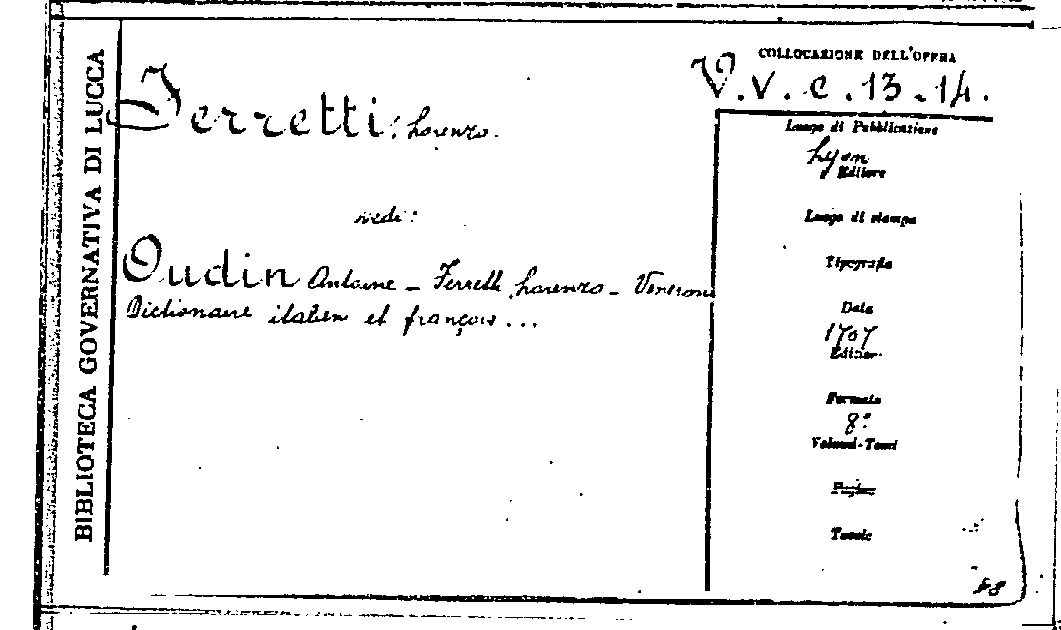 BIBLIOTECA GOVERNATIVA DI LUCCA
COLLOCAZIONE DELL'OPERA
V.V.C.13.14.
Ferretti: Lorenzo.
Luogo di Pubblicazione
Lyon
Editore
vedi:
Luogo di stampa
Tipografia
Oudin Antoine - Ferretti Lorenzo - Veneroni
Dictionaire italien et françois...
Data
1707
Edizion
Formato
8°
Volumi-Tomi
Pagine
Tavole